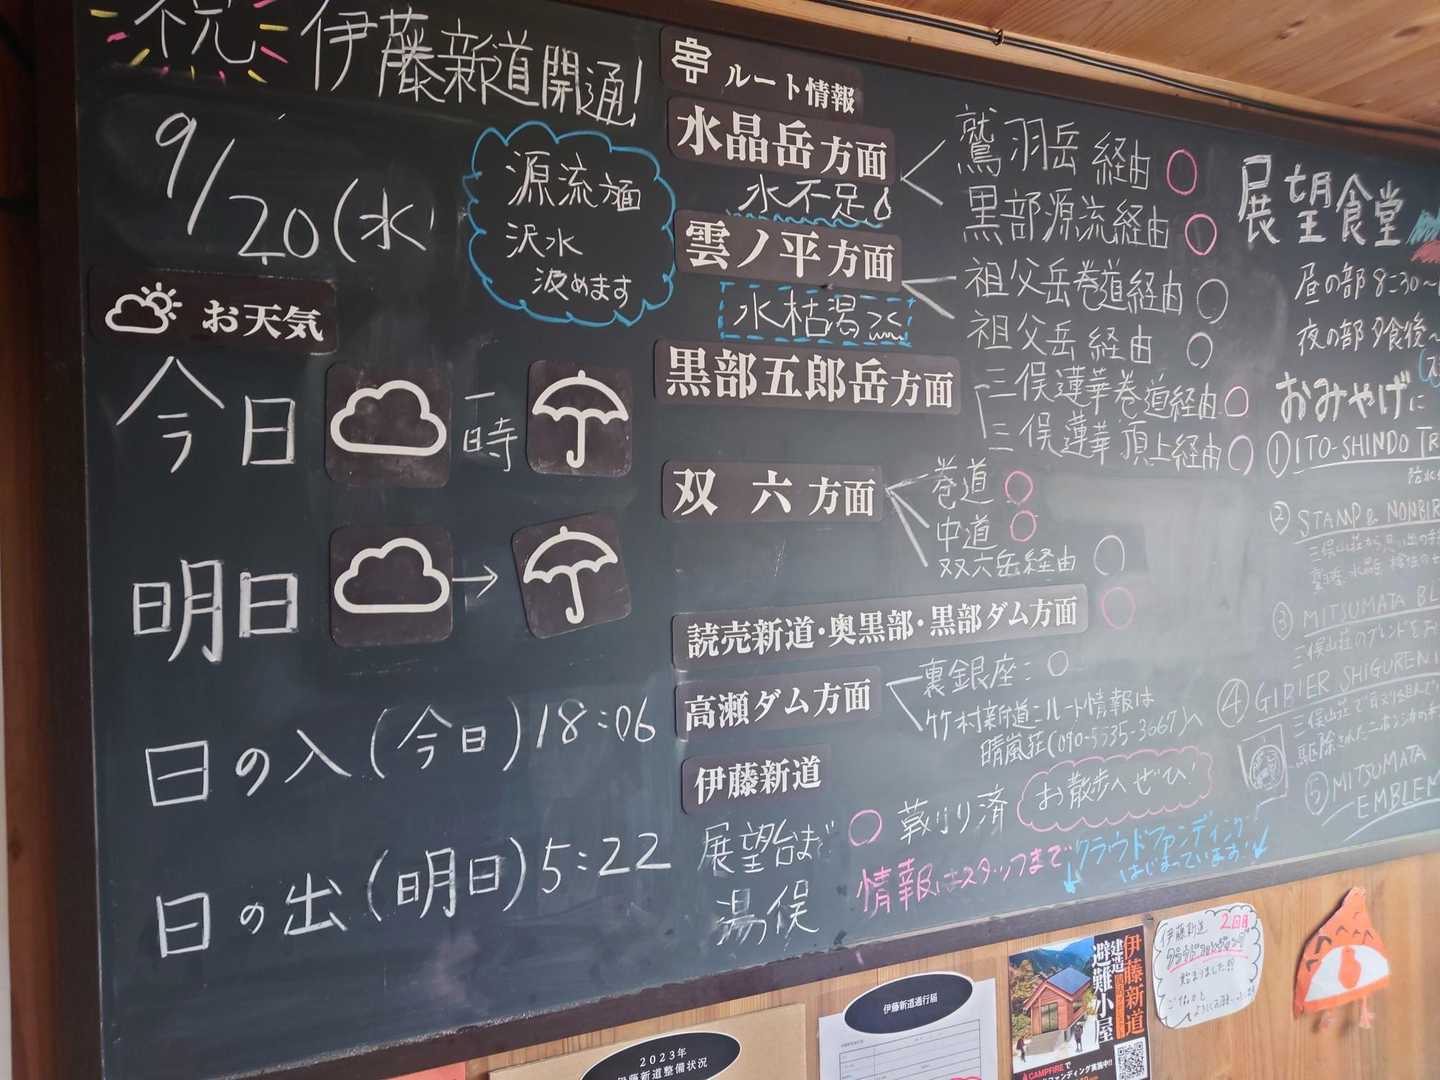 祝 伊藤新道開通!
9/20(水)
源流福
沢水
汲めます
お天気
今日 一時
明日 →
日の入(今日)18:06
日の出(明日)5:22
ルート情報
水晶岳方面
水不足
鷲羽岳 経由 ○
黒部源流経由 ○
雲ノ平方面
水枯渇
祖父岳巻道経由 ○
祖父岳 経由 ○
黒部五郎岳方面
三俣蓮華巻道経由 ○
三俣蓮華 頂上経由 ○
双六方面
巻道 ○
中道 ○
双六岳経由 ○
読売新道・奥黒部・黒部ダム方面 ○
高瀬ダム方面
裏銀座: ○
竹村新道:ルート情報は
晴嵐荘(090-5535-3667)へ
伊藤新道
展望台まで ○ 草刈り済 お散歩へ ぜひ!
湯俣
情報はスタッフまで
クラウドファンディング
はじまっています!
展望食堂
昼の部 8:30~
夜の部 夕食後~
おみやげに
①ITO-SHINDO
②STAMP &
③MITSUMATA
三俣山荘のブレンドを
④GIBIER SHIGURENI
三俣山荘で
駆除されたニホンジカの
⑤MITSUMATA
EMBLEM
2023年
伊藤新道整備状況
伊藤新道通行届
伊藤新道
避難小屋
建造
CAMPFIREで
伊藤新道 2回目
始まりました!!